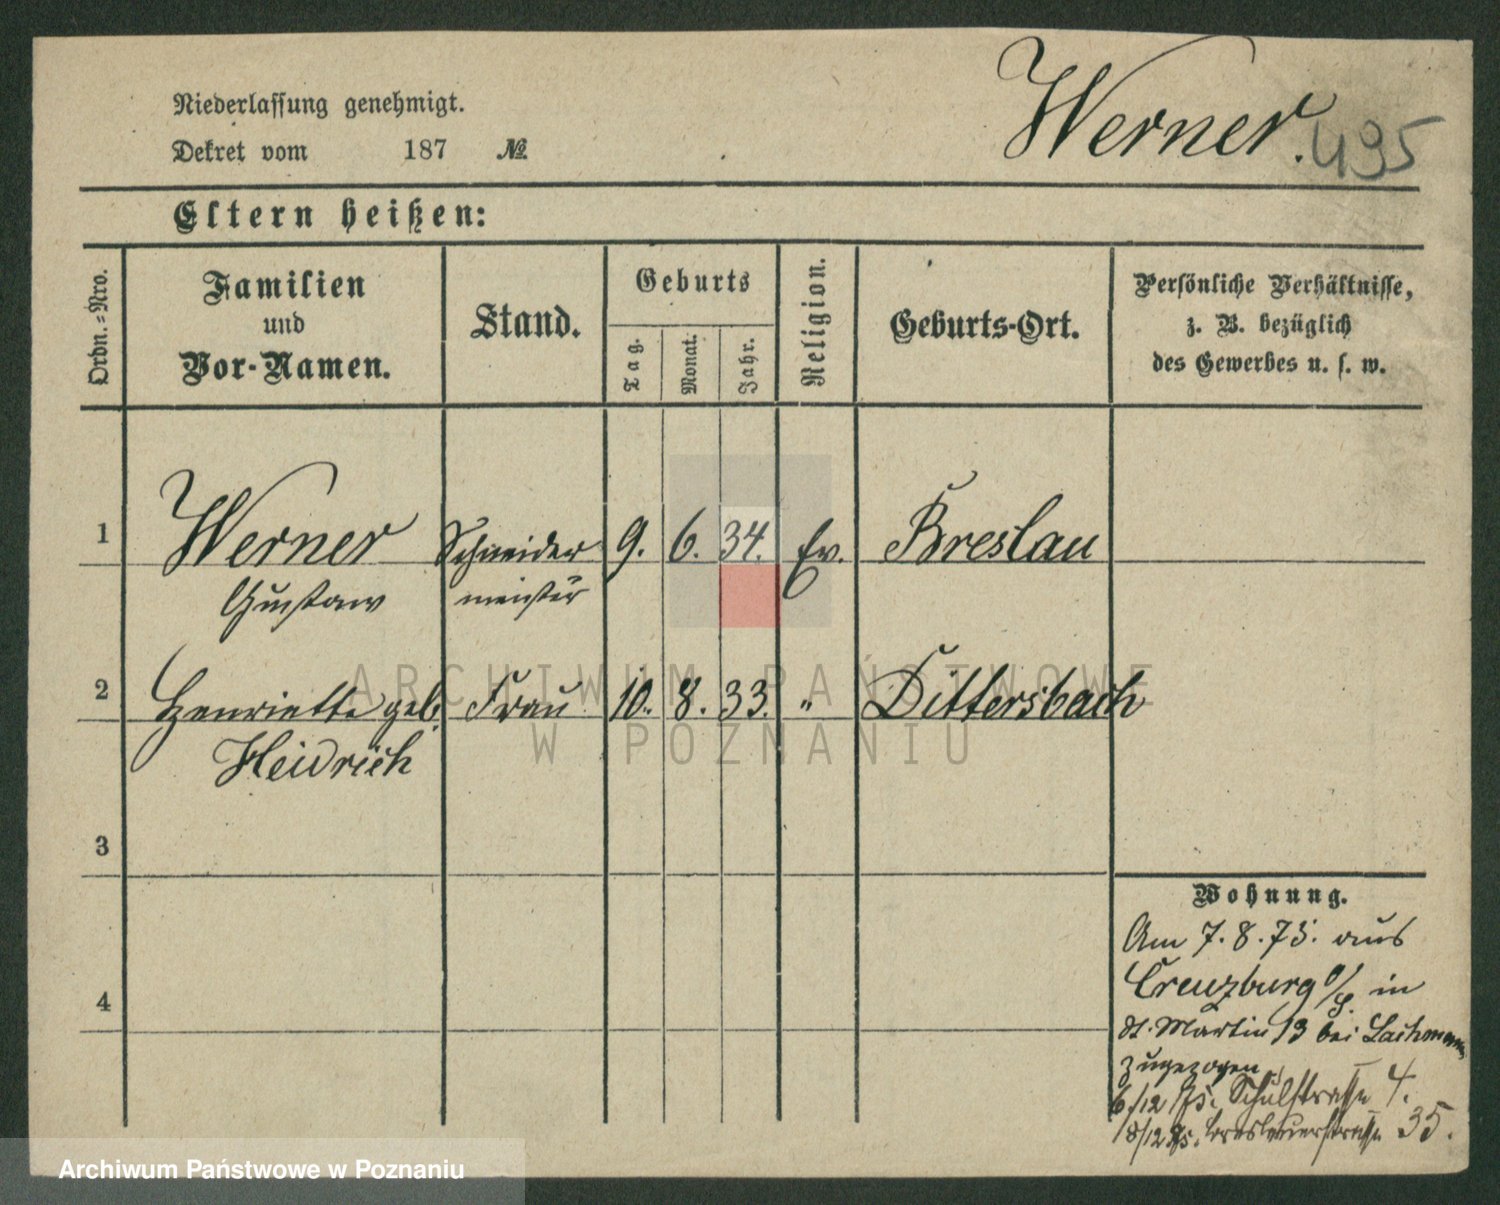 Werner.
495
Niederlassung genehmigt.
Dekret vom 187 №
Eltern heißen:
Ordn.-Nro.
Familien
und
Vor-Namen.
Stand.
Geburts
Tag.
Monat.
Jahr.
Religion.
Geburts-Ort.
Persönliche Verhältnisse,
z. B. bezüglich
des Gewerbes u. s. w.
1 Werner Schneider 9. 6. 34. Ev. Breslau
Gustav meister
2 Henriette geb. Frau 10. 8. 33. " Dittersbach
Heidrich
3
4
Wohnung.
Am 7.8.75. aus
Creuzburg in
St. Martin 13 bei Lachmann
zugezogen
6/12 75. Schulstrasse 4.
18/12 75. Breslauerstrasse 35.
ARCHIWUM PAŃSTWOWE
W POZNANIU
Archiwum Państwowe w Poznaniu